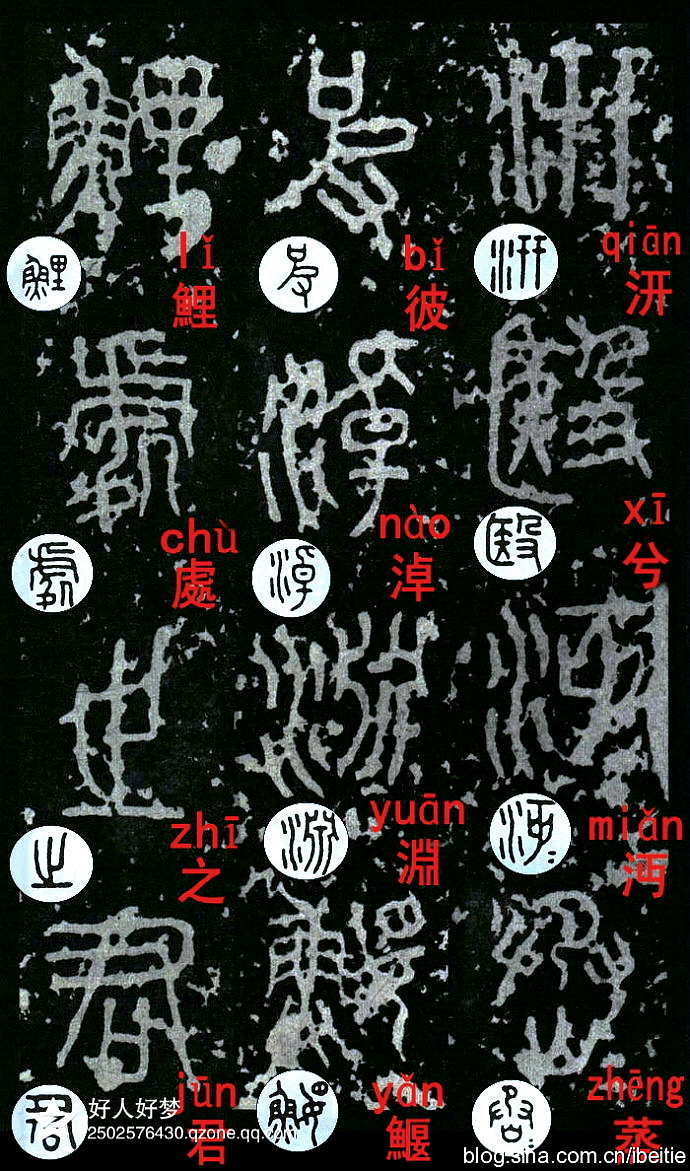 qiān
汧
xī
兮
miǎn
沔
zhēng
蒸
bǐ
彼
nào
淖
yuān
淵
yǎn
鰋
lǐ
鯉
chù
處
zhī
之
jūn
君
好人好梦
2502576430.qzone.qq.com
blog.sina.com.cn/ibeitie